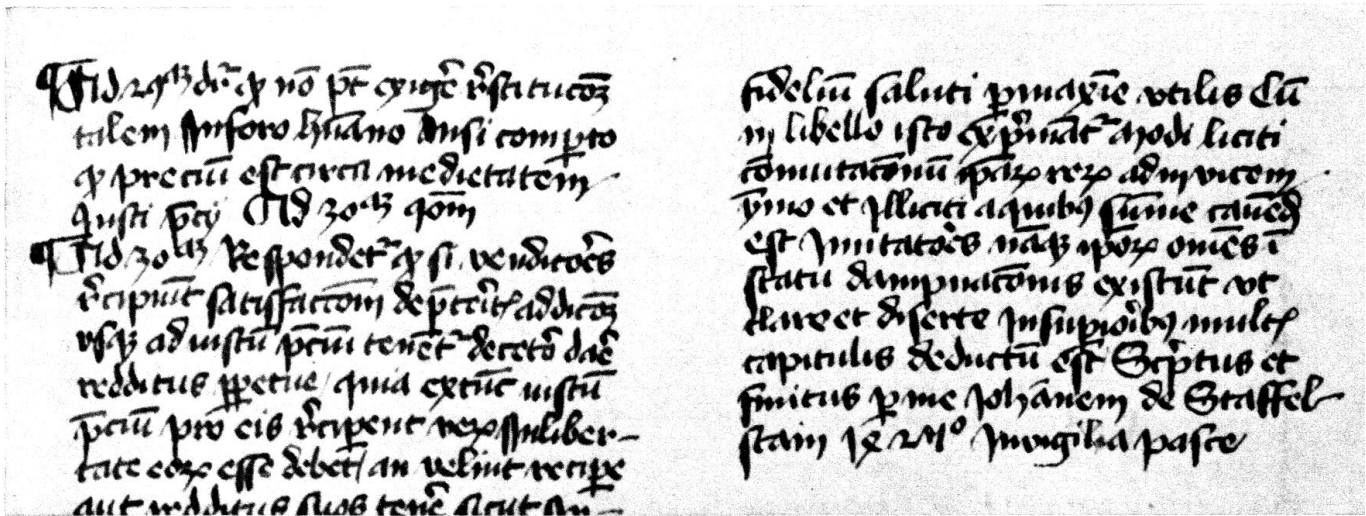 ¶ Ad 2ᵃᵐ dr̄ ꝙ nō pt̄ exiḡe r̄stitucōꝫ
talem In foro hūano Nisi comp̄to
ꝙ preciū est circa medietatem
Justi p̄cij Ad 3ᵃᵐ qōm
¶ Ad 3ᵃᵐ Respondet᷑ ꝙ si venditor̄es
r̄cipiūt satisfactōm de p̄terit᷑ addicōꝫ
vsqꝫ ad iustū p̄ciū tenēt᷑ de cetō daē
redditus ꝑpetue / quia extūc iustū
p̄ciū pro eis r̄cipent veꝝ In liber-
tate eoꝝ esse debet / an velint recipe
aut redditus suos tenē sicut
fideliū saluti ꝑmaxīe vtilis Cū
in libello isto exp̄māt᷑ modi liciti
cōmutacōnū ipāꝝ reꝝ ad invicem
ȳmo et Illiciti a quibꝫ sūme cauēd̄
est Imitatōes nāqꝫ ipōꝝ om̄es ī
statu dampnacōnis existūt vt
clare et diserte In supioībꝫ mult᷑
capitulis deductū est Sc̄ptus et
finitus ꝑ me Johānem de Staffel-
stain In vigilia pasce